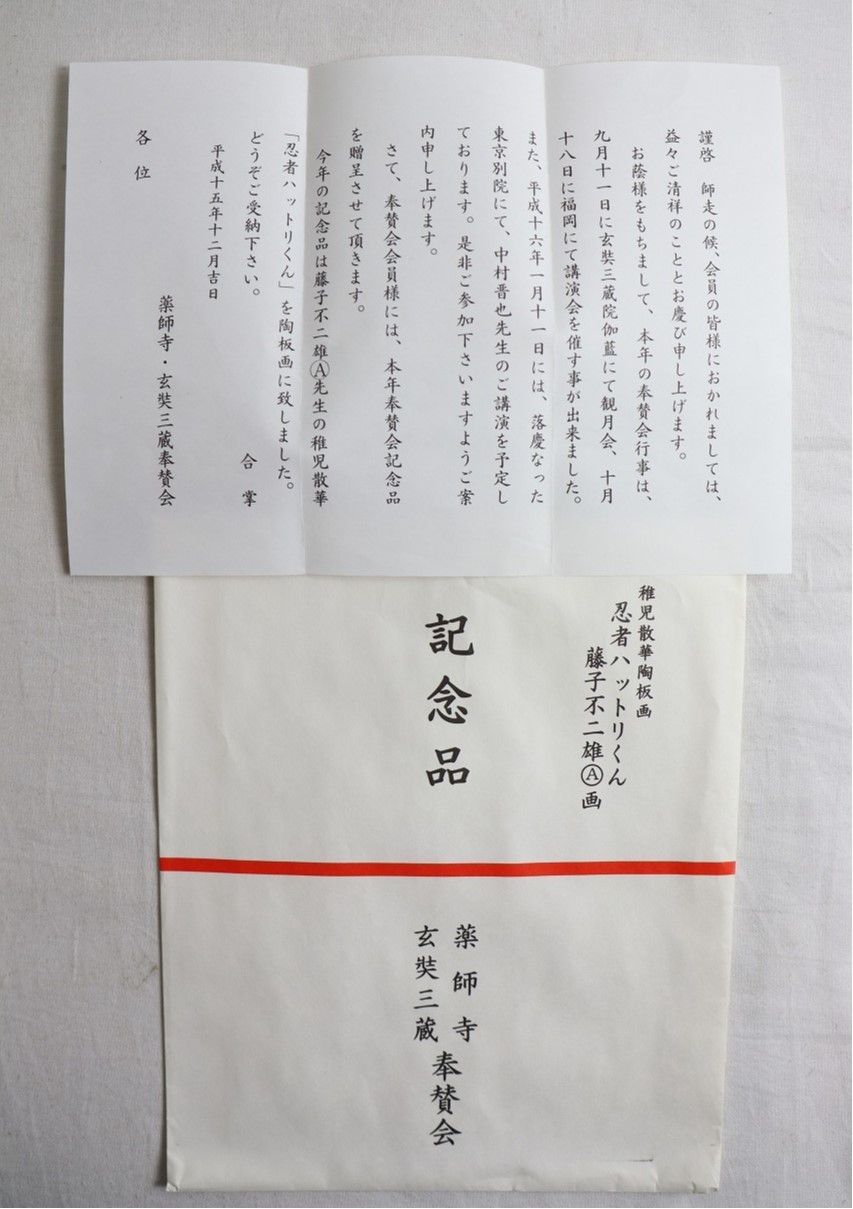 謹啓　師走の候、会員の皆様におかれましては、
益々ご清祥のこととお慶び申し上げます。
お蔭様をもちまして、本年の奉賛会行事は、
九月十一日に玄奘三蔵院伽藍にて観月会、十月
十八日に福岡にて講演会を催す事が出来ました。
また、平成十六年一月十一日には、落慶なった
東京別院にて、中村晋也先生のご講演を予定し
ております。是非ご参加下さいますようご案
内申し上げます。
さて、奉賛会会員様には、本年奉賛会記念品
を贈呈させて頂きます。
今年の記念品は藤子不二雄Ⓐ先生の稚児散華
「忍者ハットリくん」を陶板画に致しました。
どうぞご受納下さい。
合掌
平成十五年十二月吉日
薬師寺・玄奘三蔵奉賛会
各位
稚児散華陶板画
忍者ハットリくん
藤子不二雄Ⓐ画
記念品
薬師寺
玄奘三蔵
奉賛会